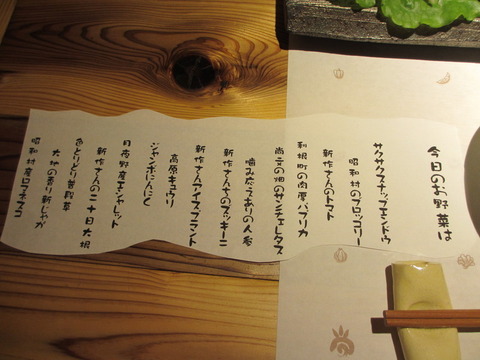 今日のお野菜は
サクサクスナップエンドウ
昭和村のブロッコリー
新作さんのトマト
利根町の肉厚パプリカ
尚元の畑のサンチェータス
噛みごたえありの人参
新作さんちのズッキーニ
新作さんアイスプマント
高原キュウリ
ジャンボにんにく
月夜野産エシャレット
新作さんの二十日大根
色とりどり菊副草
大地の香り新じゃが
昭和村産ロマネスコ